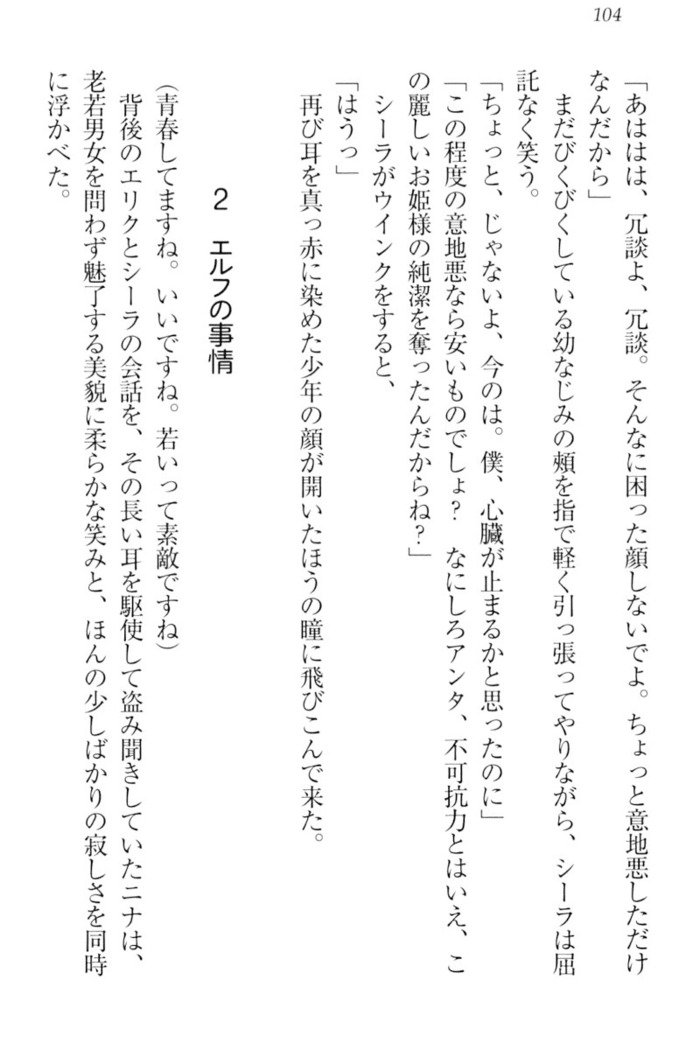 104
「あははは、冗談よ、冗談。そんなに困った顔しないでよ。ちょっと意地悪しただけ
なんだから」
　まだびくびくしている幼なじみの頰を指で軽く引っ張ってやりながら、シーラは屈
託なく笑う。
「ちょっと、じゃないよ、今のは。僕、心臓が止まるかと思ったのに」
「この程度の意地悪なら安いものでしょ？　なにしろアンタ、不可抗力とはいえ、こ
の麗しいお姫様の純潔を奪ったんだからね？」
　シーラがウインクをすると、
「はうっ」
　再び耳を真っ赤に染めた少年の顔が開いたほうの瞳に飛びこんで来た。
2　エルフの事情
（青春してますね。いいですね。若いって素敵ですね）
　背後のエリクとシーラの会話を、その長い耳を駆使して盗み聞きしていたニナは、
老若男女を問わず魅了する美貌に柔らかな笑みと、ほんの少しばかりの寂しさを同時
に浮かべた。